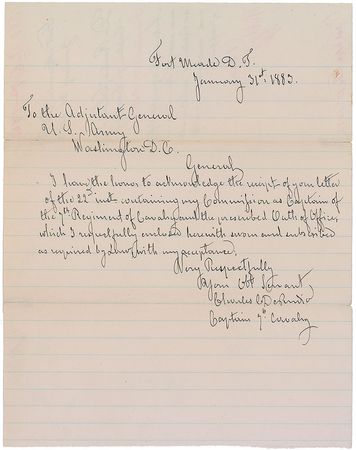 Fort Meade D.T.
January 31st, 1883.
To the Adjutant General
U.S. Army
Washington D.C.
General,
I have the honor to acknowledge the receipt of your letter
of the 22d inst. containing my Commission as Captain of
the 7th Regiment of Cavalry and the prescribed Oath of Office,
which I respectfully enclose herewith sworn and subscribed
as required by Law with my acceptance,
Very Respectfully
Your Obt Servant,
Charles C DeRudio
Captain 7th Cavalry